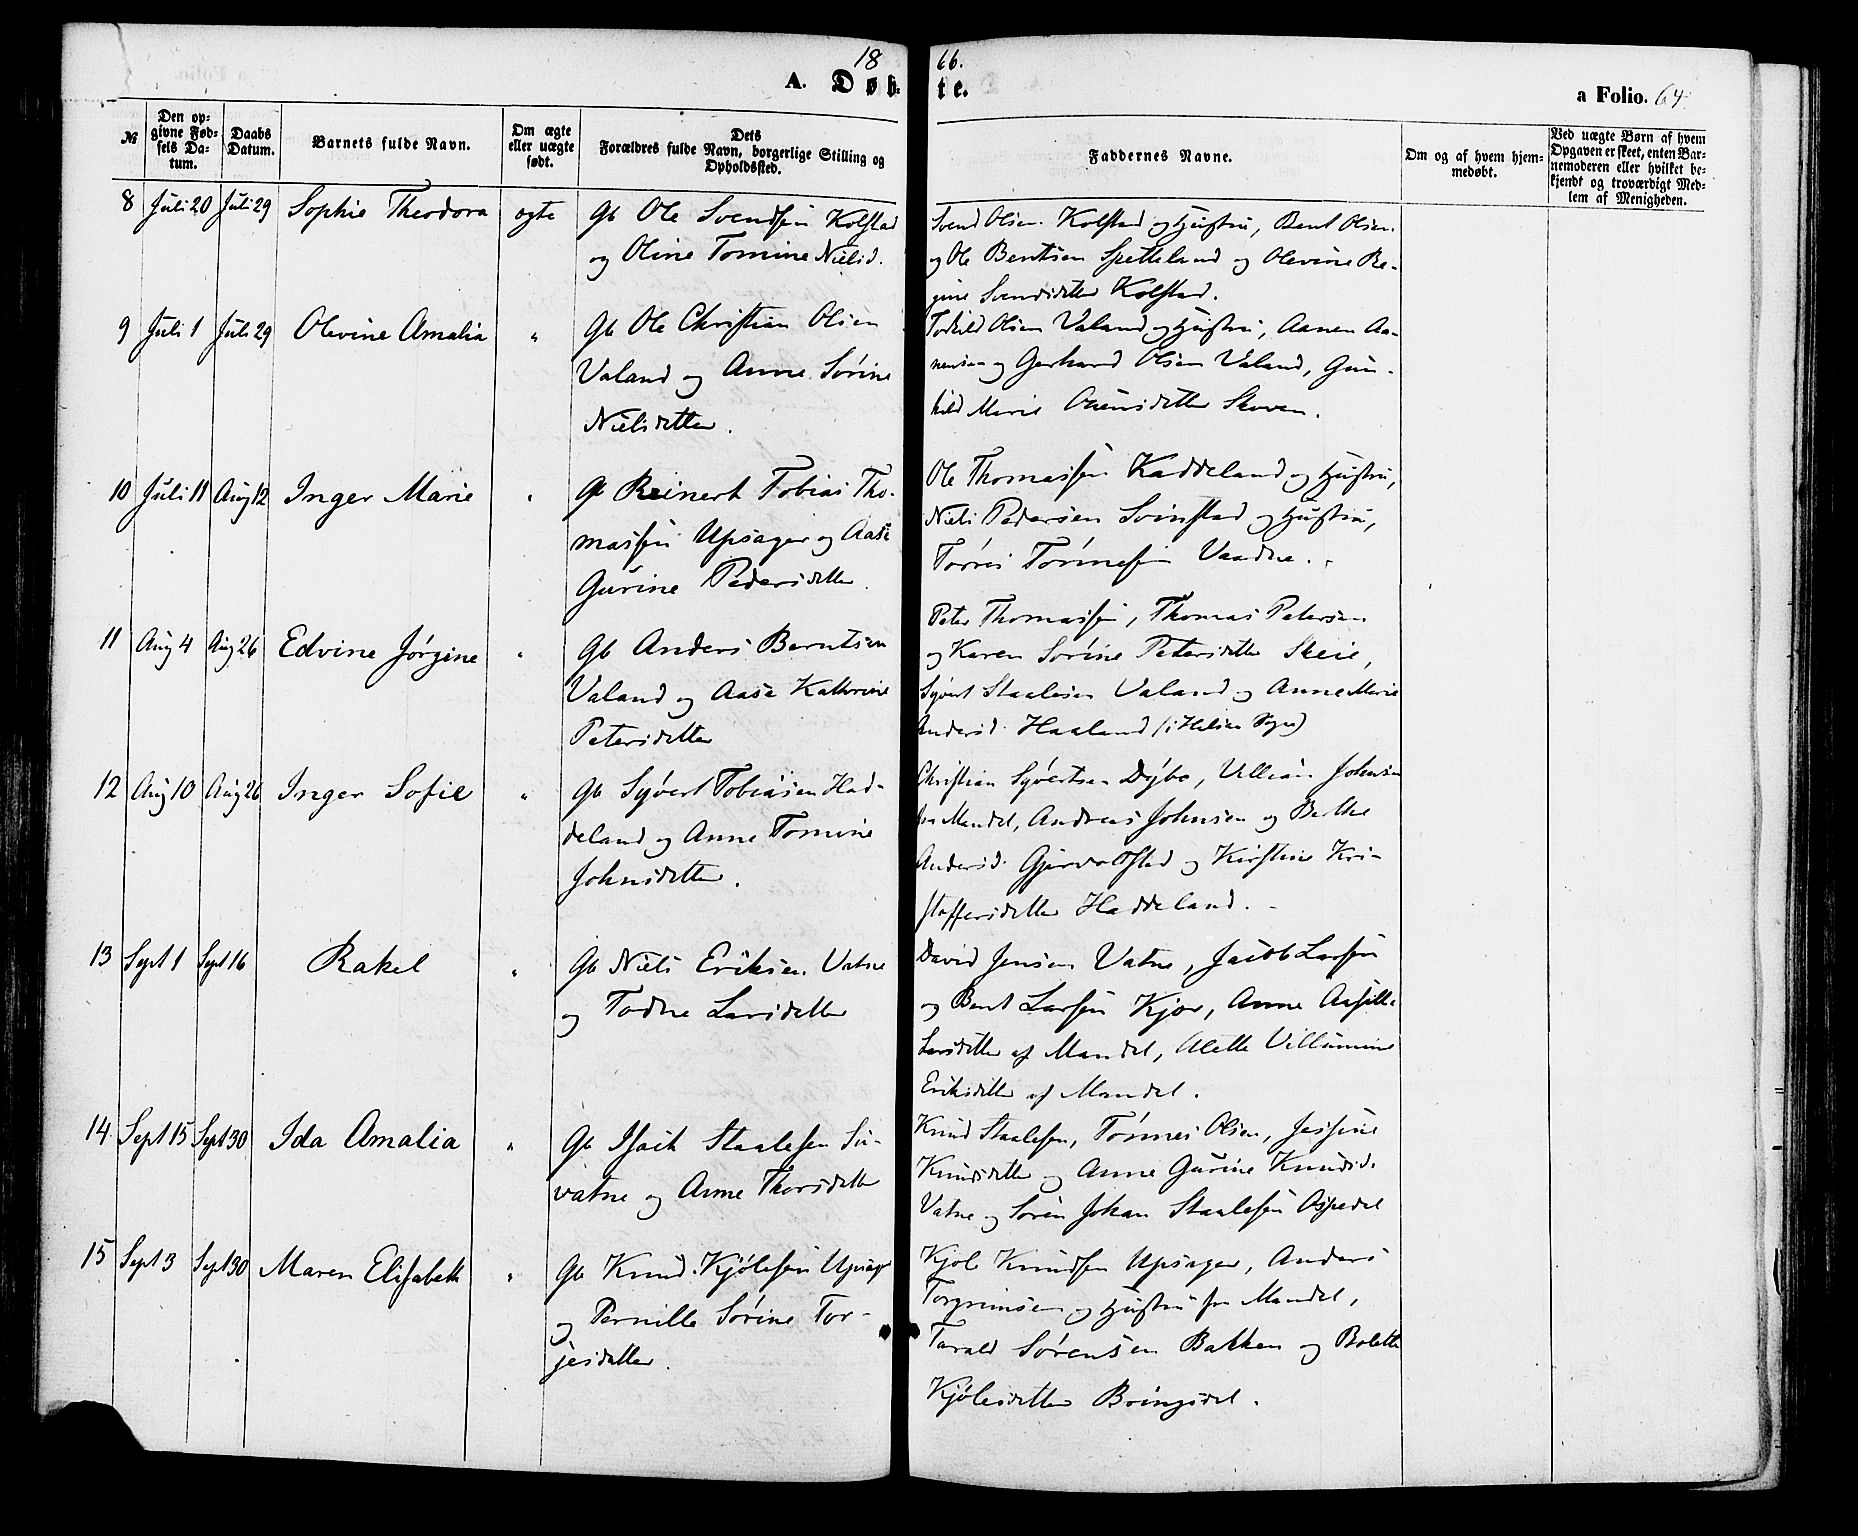 1866.
A. Døbte.
a Folio. 64
№
Den opgivne Fødsels Datum.
Daabs Datum.
Barnets fulde Navn.
Om ægte eller uægte født.
Dets Forældres fulde Navn, borgerlige Stilling og Opholdssted.
Faddernes Navne.
Om og af hvem hjemmedøbt.
Ved uægte Børn af hvem Opgaven er skeet, enten Barnemoderen eller hvilket bekjendt og troværdigt Medlem af Menigheden.
8 Juli 20 Juli 29 Sophie Theodora ægte Gb Ole Svendsen Kolstad
og Oline Tomine Nielsd.
Svend Olsen Kolstad og Hustru, Bent Olsen
og Ole Bentsen Spetteland og Olevine Re-
gine Svendsdatter Kolstad.
9 Juli 1 Juli 29 Olevine Amalia " Gb Ole Christian Olsen
Valand og Anne Sørine
Nielsdatter.
Torkild Olsen Valand og Hustru, Aanen Aa-
nensen og Gerhard Olsen Valand, Gun-
hild Marie Skoven.
10 Juli 11 Aug 12 Inger Marie " Gb Reinert Tobias Tho-
massen Upsager og Aase
Gurine Pedersdatter.
Ole Thomassen Haddeland og Hustru,
Niels Pedersen Svinstad og Hustru,
Tørres Tønnesen Vaadne.
11 Aug 4 Aug 26 Edvine Jørgine " Gb Anders Berntsen
Valand og Aase Kathrine
Petersdatter
Peter Thomassen, Thomas Petersen
og Karen Sørine Petersdatter Skeie,
Syvert Staalesen Valand og Anne Marie
Andersd. Haaland (i Sogn)
12 Aug 10 Aug 26 Inger Sofie " Gb Syvert Tobiasen Had-
deland og Anne Tomine
Johnsdatter.
Christian Syvertsen Dybo, Villiam Johnsen
fra Mandal, Andreas Johnsen og Berthe
Andersd. og Kirstine Kri-
stoffersdatter Haddeland.
13 Sept 1 Sept 16 Rakel " Gb Niels Eriksen Vatne
og Todne Larsdatter
David Jensen Vatne, Jacob Larsen
og Bent Larsen Kjør, Anne Aasille
Larsdatter af Mandel, Alette Villumine
Eriksdatter af Mandel.
14 Sept 15 Sept 30 Ida Amalia " Gb Isaik Staalesen Su-
vatne og Anne Thorsdatter
Knud Staalesen, Tønnes Olsen, Jessine
Knudsdatter og Anne Gurine Knudsd.
Vatne og Søren Johan Staalesen Ospedal
15 Sept 3 Sept 30 Maren Elisabeth " Gb Knud Kjølesen Upsager
og Pernille Sørine Tor-
jesdatter.
Kjøl Knudsen Upsager, Anders
Torgrimsen og Hustru fra Mandel,
Tarald Sørensen Bakken og Bolette
Kjølesdatter Bringsdal.